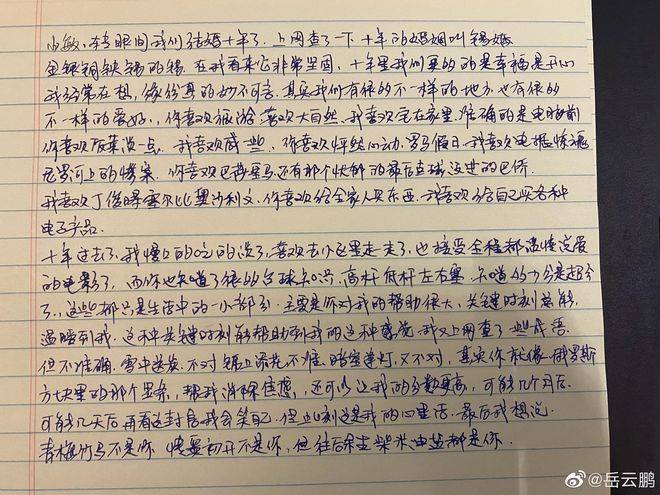 小敏, 转眼间我们结婚十年了. 上网查了一下 十年的婚姻叫锡婚
金银铜铁锡的锡. 在我看来它非常坚固, 十年里我们真的的是幸福是开心
我经常在想, 缘份真的妙不可言. 其实我们有很的不一样的地方. 也有很的
不一样的爱好. 你喜欢旅游 喜欢大自然. 我喜欢宅在家里. 准确的是电脑前
你喜欢饭菜淡一点. 我喜欢咸一些, 你喜欢怦然心动. 罗马假日. 我喜欢电锯惊魂
尼罗河上的惨案. 你喜欢巴萨皇马还有那个快解的最后点球没进的巴乔.
我喜欢丁俊晖塞尔比奥沙利文. 你喜欢给全家人买东西. 我喜欢给自己买各种
电子产品.
十年过去了. 我慢慢的吃的淡了, 喜欢去小区里走走了, 也接受全程都谈情说爱
的电影了, 而你也知道了很的台球知识. 高杆 低杆 左右塞. 知道的分是超分
了, 这些都只是生活中的一小部分. 主要是你对我的帮助很大, 关键时刻总能
温暖到我. 这种关键时刻能帮助到我的这种感觉 我又上网查了一些成语
但不准确. 雪中送炭. 不对 锦上添花不准. 暗室逢灯. 又不对, 其实你就像俄罗斯
方块里的那个竖条, 帮我消除焦虑, 还可以让我的分数更高, 可能几个月后.
可能几天后再看这封信我会笑自己. 但此刻这是我的心里话. 最后我想说.
青梅竹马不是你 情窦初开不是你, 但往后余生柴米油盐都是你.
@岳云鹏